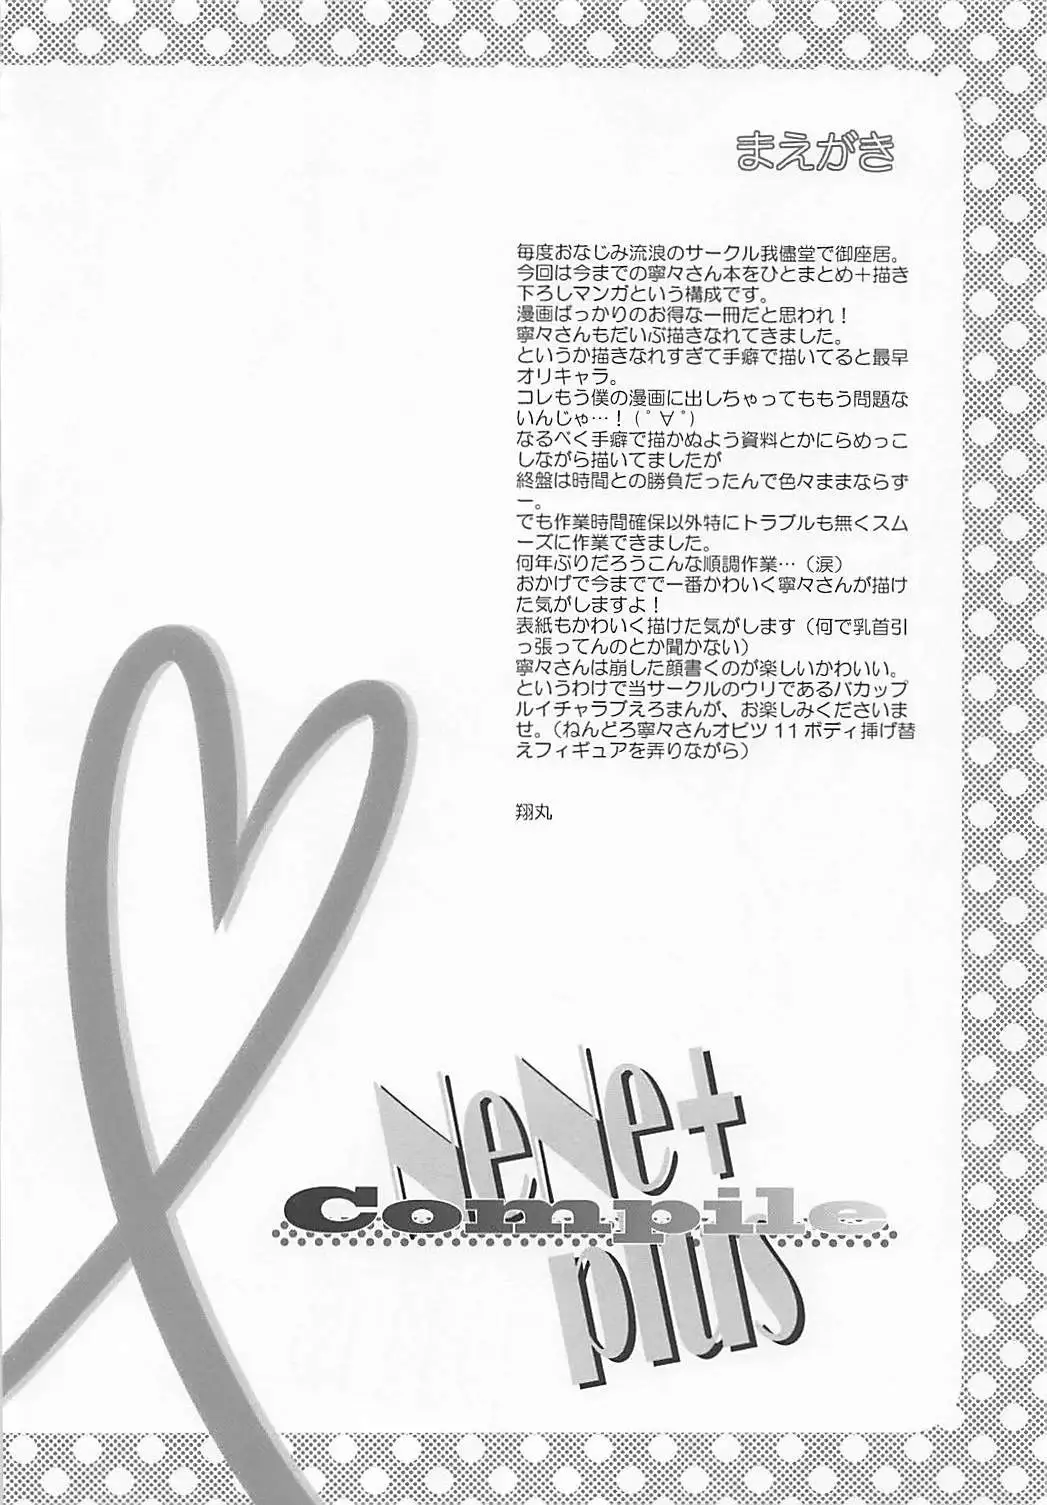 まえがき
毎度おなじみ流浪のサークル我儘堂で御座居。
今回は今までの寧々さん本をひとまとめ＋描き
下ろしマンガという構成です。
漫画ばっかりのお得な一冊だと思われ！
寧々さんもだいぶ描きなれてきました。
というか描きなれすぎて手癖で描いてると最早
オリキャラ。
コレもう僕の漫画に出しちゃってももう問題な
いんじゃ…！(ﾟ∀ﾟ)
なるべく手癖で描かぬよう資料とかにらめっこ
しながら描いてましたが
終盤は時間との勝負だったんで色々ままならず
ー。
でも作業時間確保以外特にトラブルも無くスム
ーズに作業できました。
何年ぶりだろうこんな順調作業…（涙）
おかげで今までで一番かわいく寧々さんが描け
た気がしますよ！
表紙もかわいく描けた気がします（何で乳首引
っ張ってんのとか聞かない）
寧々さんは崩した顔書くのが楽しいかわいい。
というわけで当サークルのウリであるバカップ
ルイチャラブえろまんが、お楽しみくださいま
せ。（ねんどろ寧々さんオビツ11ボディ挿げ替
えフィギュアを弄りながら）
翔丸
NeNe+
Compile
plus